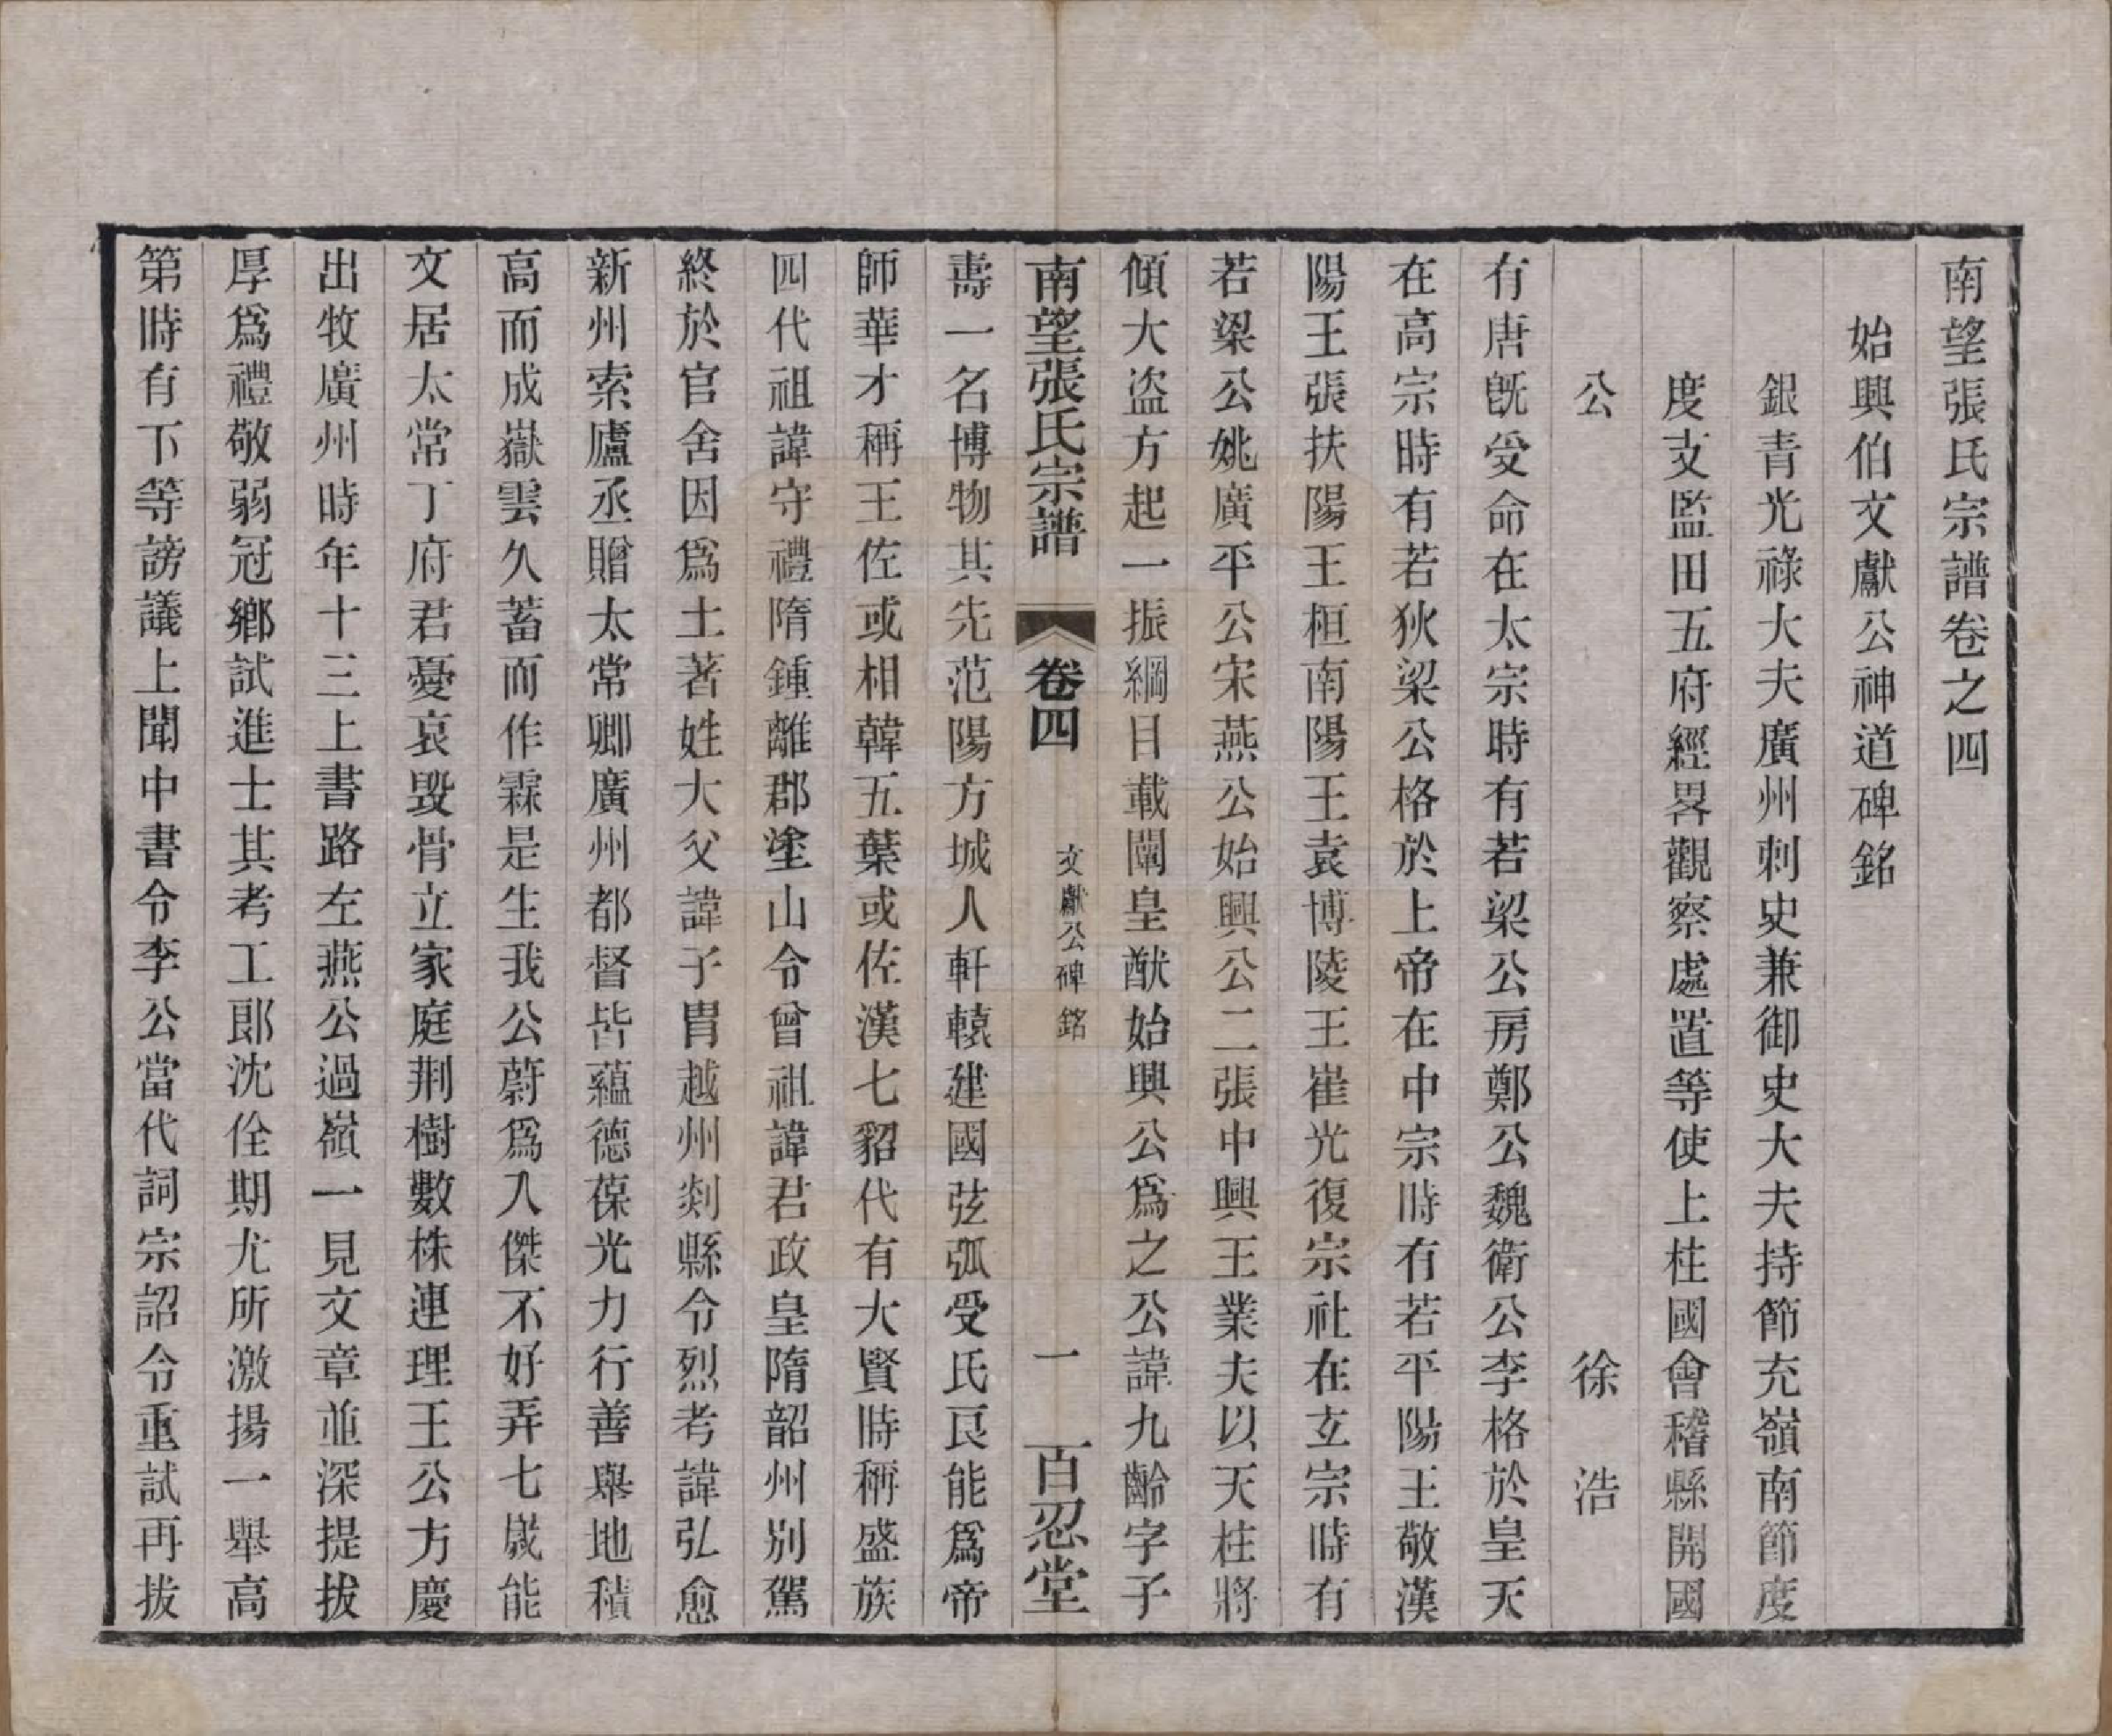 南望張氏宗譜卷之四
始興伯文獻公神道碑銘
銀青光祿大夫廣州刺史兼御史大夫持節充嶺南節度
度支監田五府經畧觀察處置等使上柱國會稽縣開國
公　徐浩
有唐旣受命在太宗時有若梁公房鄭公魏衛公李格於皇天
在高宗時有若狄梁公格於上帝在中宗時有若平陽王敬漢
陽王張扶陽王桓南陽王袁博陵王崔光復宗社在玄宗時有
若梁公姚廣平公宋燕公始興公二張中興王業夫以天柱將
傾大盜方起一振綱目載闡皇猷始興公爲之公諱九齡字子
南望張氏宗譜　卷四　文獻公碑銘　一　百忍堂
壽一名博物其先范陽方城人軒轅建國弦弧受氏良能爲帝
師華才稱王佐或相韓五葉或佐漢七貂代有大賢時稱盛族
四代祖諱守禮隋鍾離郡塗山令曾祖諱君政皇隋韶州別駕
終於官舍因爲土著姓大父諱子胄越州剡縣令烈考諱弘愈
新州索廬丞贈太常卿廣州都督皆蘊德葆光力行善舉地積
高而成嶽雲久蓄而作霖是生我公蔚爲人傑不好弄七歲能
文居太常丁府君憂哀毀骨立家庭荆樹數株連理王公方慶
出牧廣州時年十三上書路左燕公過嶺一見文章並深提拔
厚爲禮敬弱冠鄉試進士其考工郎沈佺期尤所激揚一舉高
第時有下等謗議上聞中書令李公當代詞宗詔令重試再拔